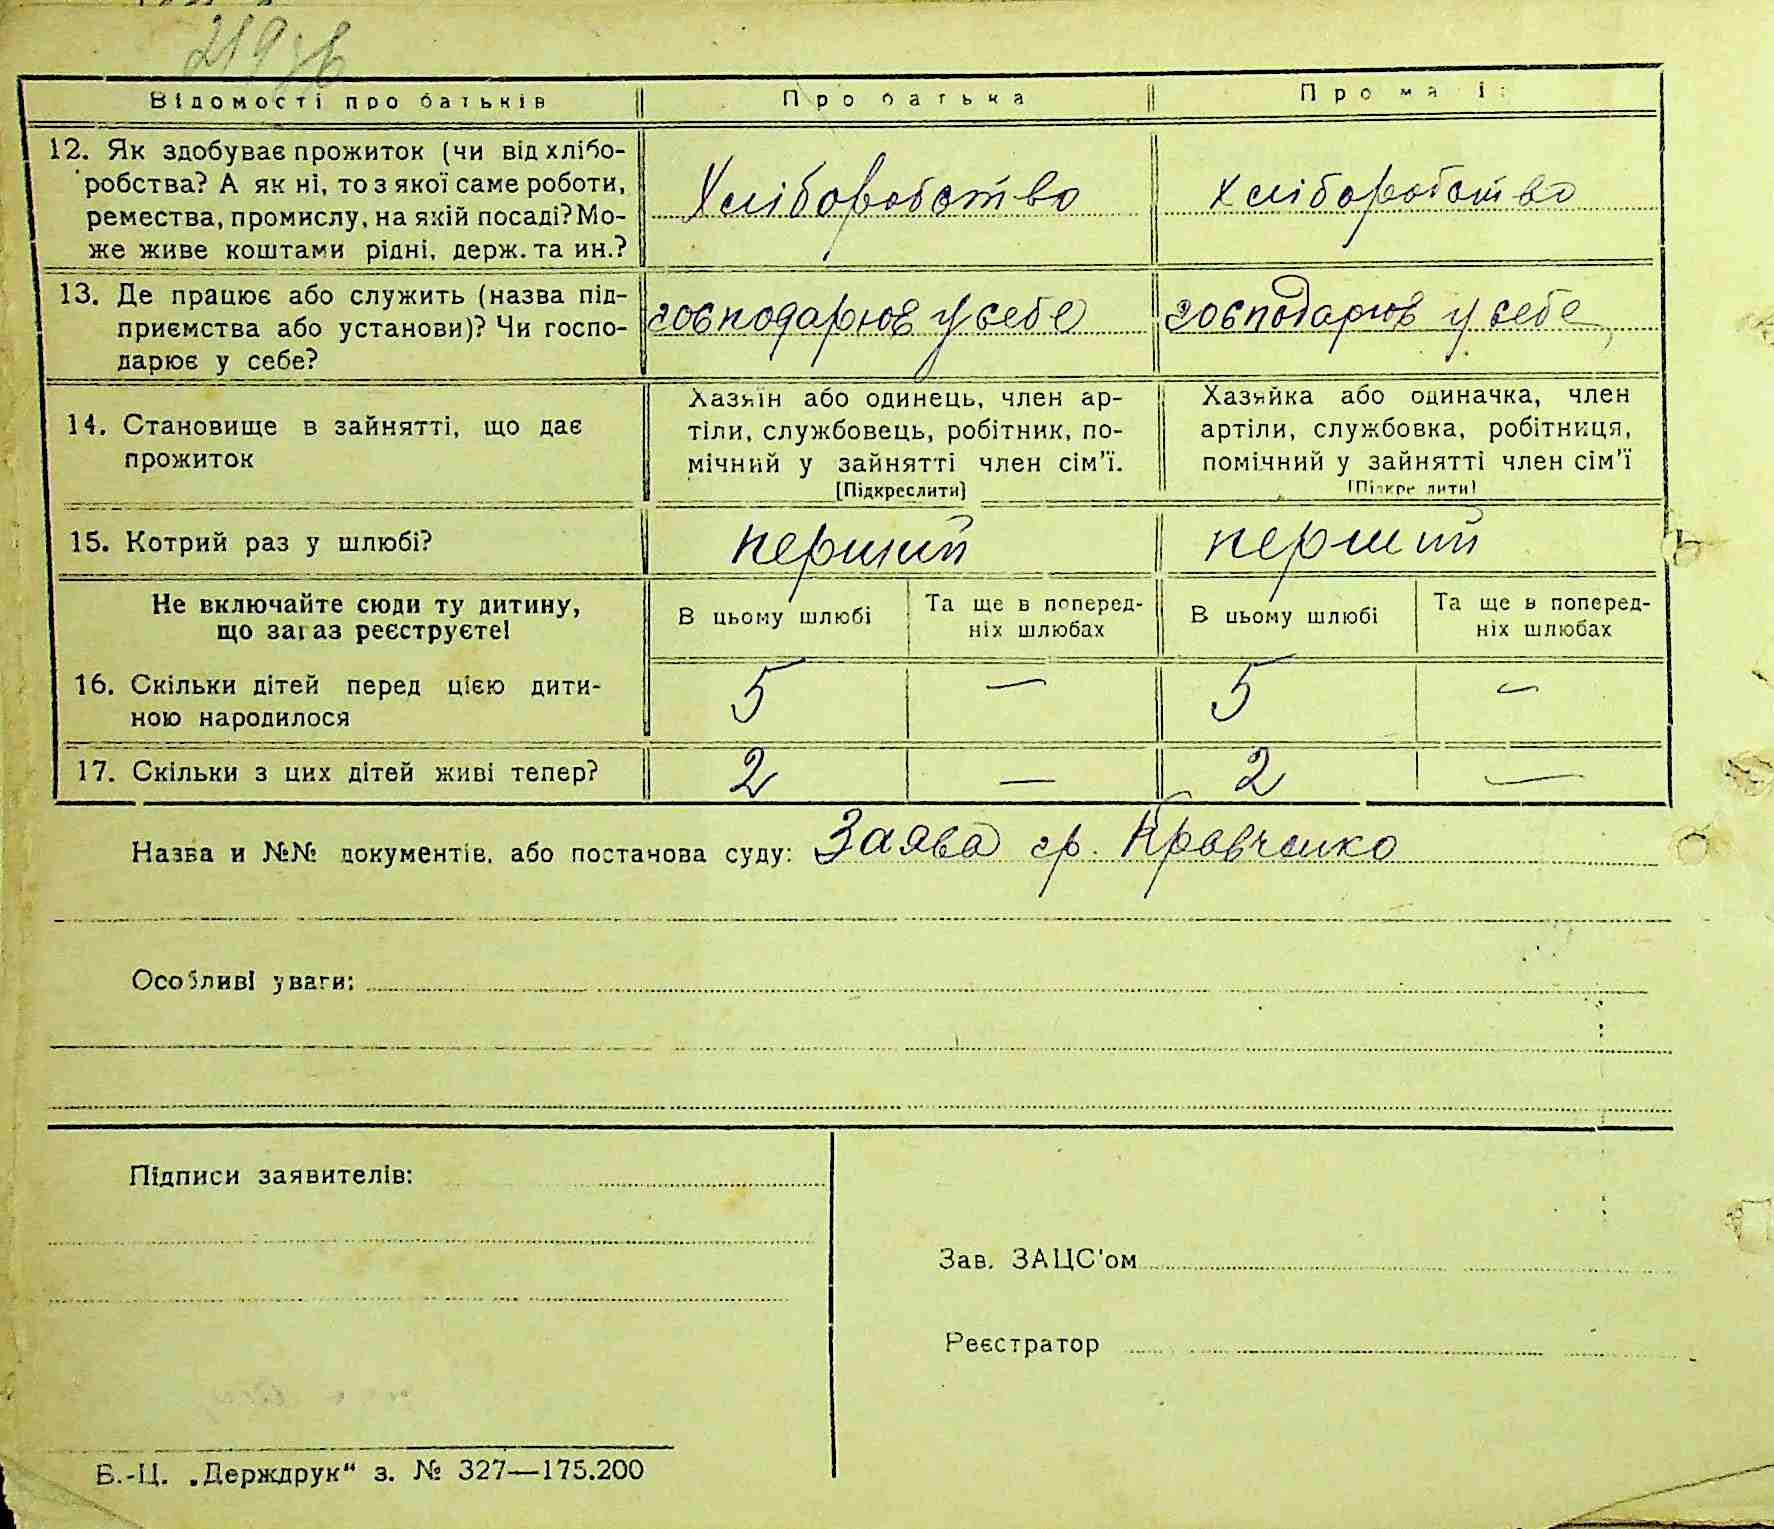 219 зв
Відомості про батьків Про батька Про маті
12. Як здобуває прожиток (чи від хлібо-
робства? А як ні, то з якої саме роботи,
ремества, промислу, на якій посаді? Мо-
же живе коштами рідні, держ. та ин.?
Хліборобство
хліборобство
13. Де працює або служить (назва під-
приємства або установи)? Чи госпо-
дарює у себе?
господарює у себе
господарює у себе
14. Становище в зайнятті, що дає
прожиток
Хазяїн або одинець, член ар-
тіли, службовець, робітник, по-
мічний у зайнятті член сім'ї.
[Підкреслити]
Хазяйка або одиначка, член
артіли, службовка, робітниця,
помічний у зайнятті член сім'ї
[Підкреслити]
15. Котрий раз у шлюбі?
перший
перший
Не включайте сюди ту дитину,
що зараз реєструєте!
В цьому шлюбі
Та ще в поперед-
ніх шлюбах
В цьому шлюбі
Та ще в поперед-
ніх шлюбах
16. Скільки дітей перед цією дити-
ною народилося
5 — 5 —
17. Скільки з цих дітей живі тепер?
2 — 2 —
Назва и №№ документів, або постанова суду: Заява гр. Кравченко
Особливі уваги:
Підписи заявителів:
Зав. ЗАЦС'ом
Реєстратор
Б.-Ц. „Держдрук" з. № 327—175.200